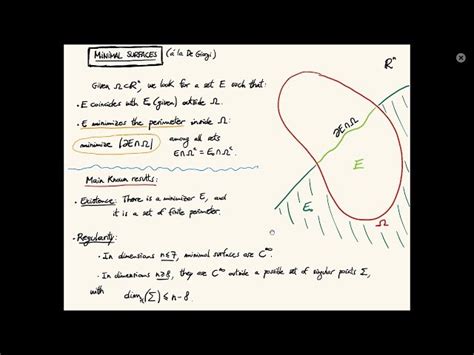 MINIMAL SURFACES (à la De Giorgi)
Given Ω⊂ℝⁿ, we look for a set E such that:
• E coincides with E₀ (given) outside Ω.
• E minimizes the perimeter inside Ω:
minimize |∂E∩Ω| among all sets
E∩Ωᶜ = E₀∩Ωᶜ.
Main Known results:
• Existence: There is a minimizer E, and
it is a set of finite perimeter.
• Regularity:
• In dimensions n≤7, minimal surfaces are C^∞.
• In dimensions n≥8, they are C^∞ outside a possible set of singular points Σ,
with dimₕ(Σ) ≤ n-8.
ℝⁿ
∂E∩Ω
E
E₀
Ω